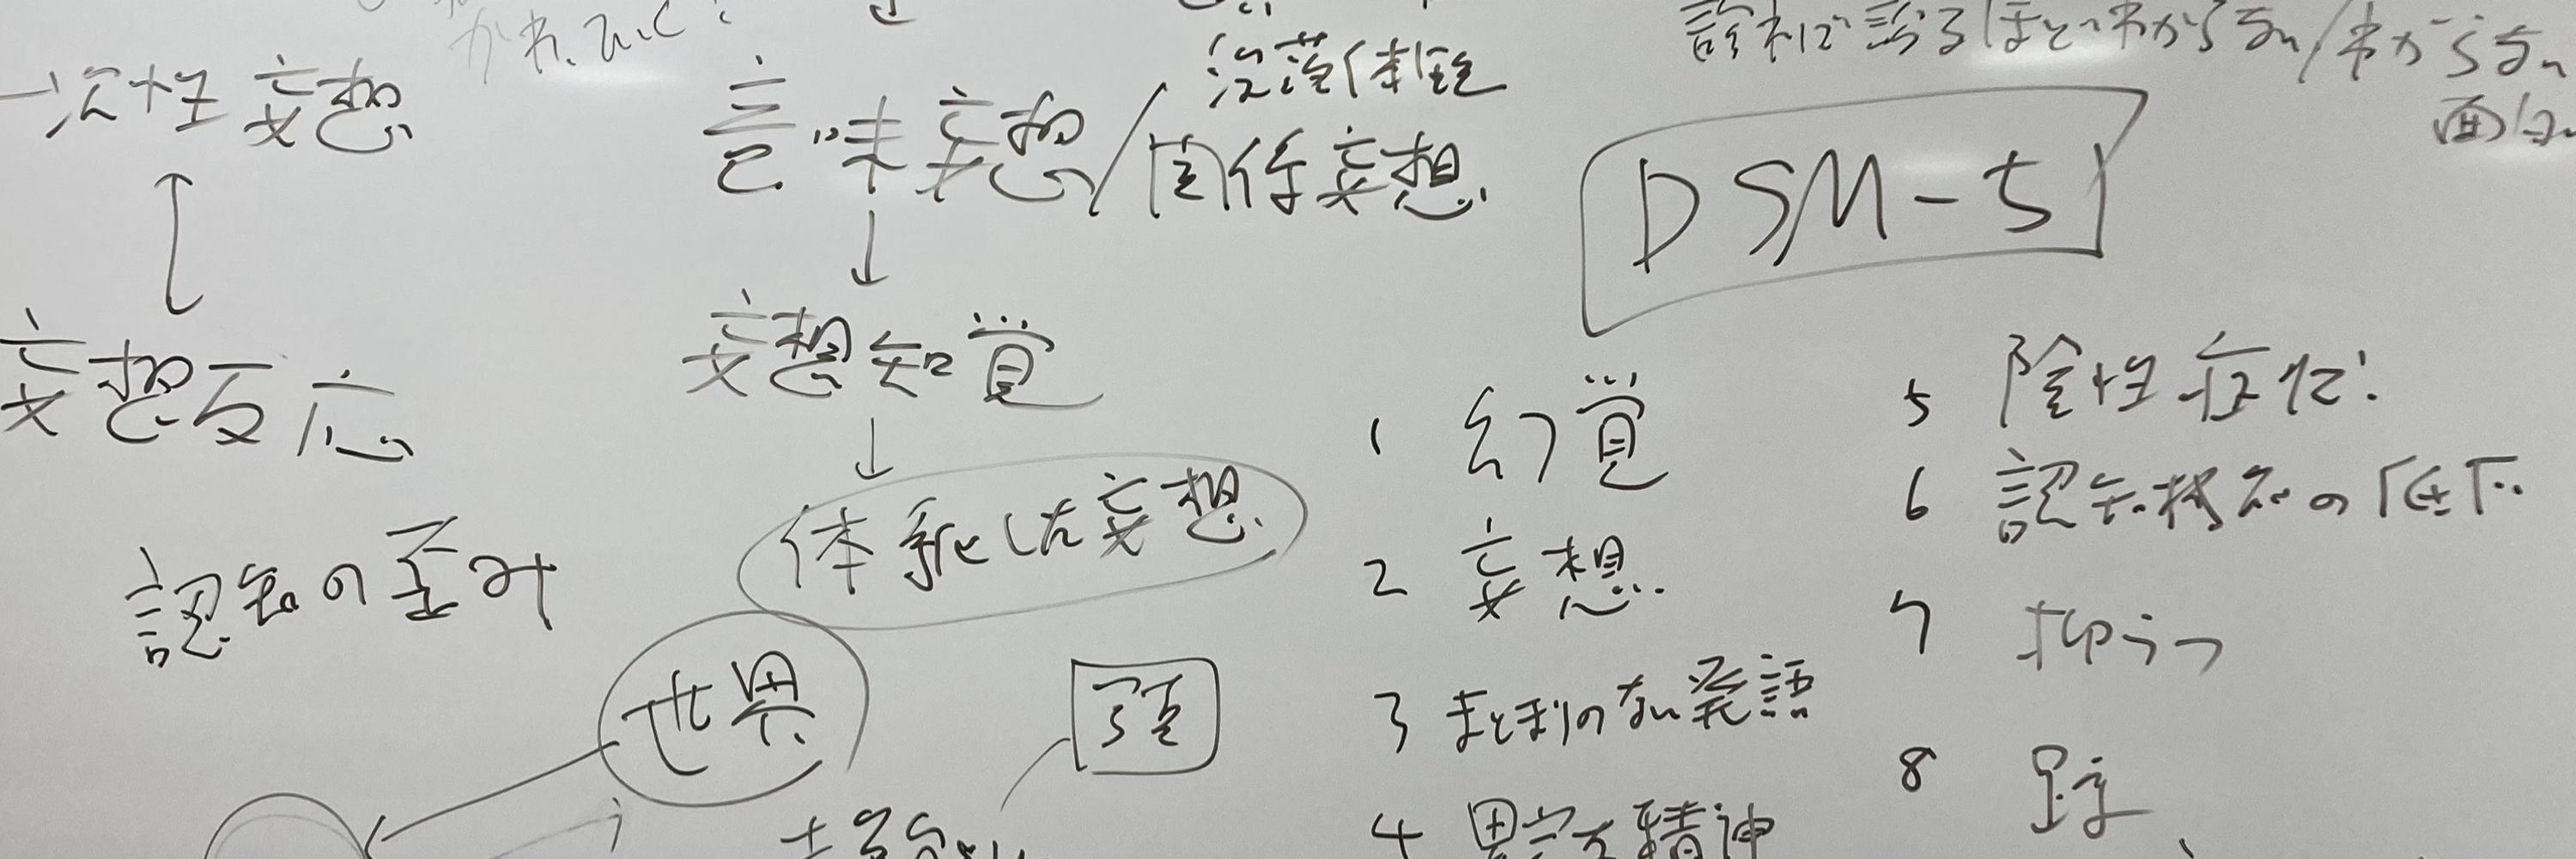 一次性妄想
妄想反応
認知の歪み
意味妄想/関係妄想
妄想知覚
体系化した妄想
世界
診れば診るほどわからない/わからない
面白い
DSM-5
1 幻覚
2 妄想
3 まとまりのない発語
4 異常な精神
5 陰性症状
6 認知機能の低下
7 抑うつ
8 躁